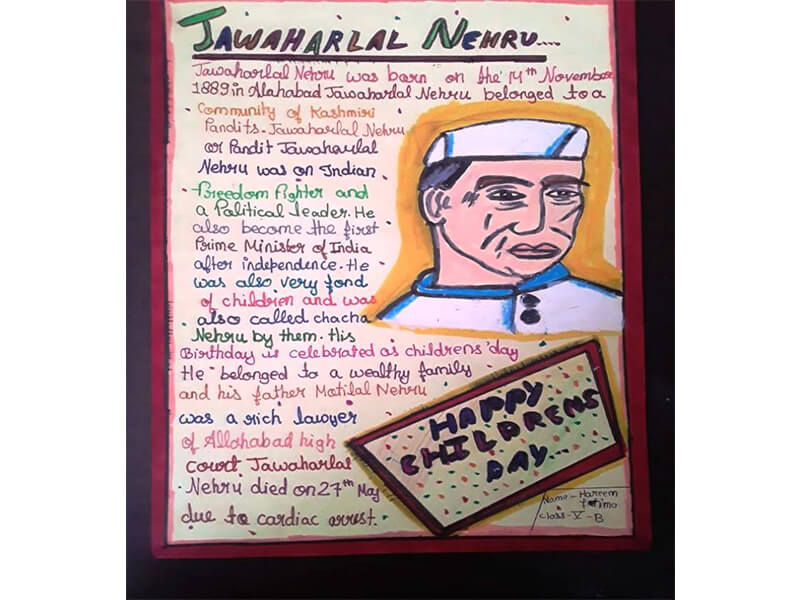 JAWAHARLAL NEHRU....
Jawaharlal Nehru was born on the 14th November
1889 in Alahabad Jawaharlal Nehru belonged to a
Community of Kashmiri
Pandits. Jawaharlal Nehru
or Pandit Jawaharlal
Nehru was an Indian
Freedom Fighter and
a Political leader. He
also become the first
Prime Minister of India
after independence. He
was also very fond
of children and was
also called chacha
Nehru by them. His
Birthday is celebrated as childrens'day
He belonged to a wealthy family
and his father Motilal Nehru
was a rich lawyer
of Allahabad high
court Jawaharlal
Nehru died on 27th May
due to cardiac arrest.
HAPPY
CHILDRENS
DAY...
Name - Hareem
Fatima
Class - V - B